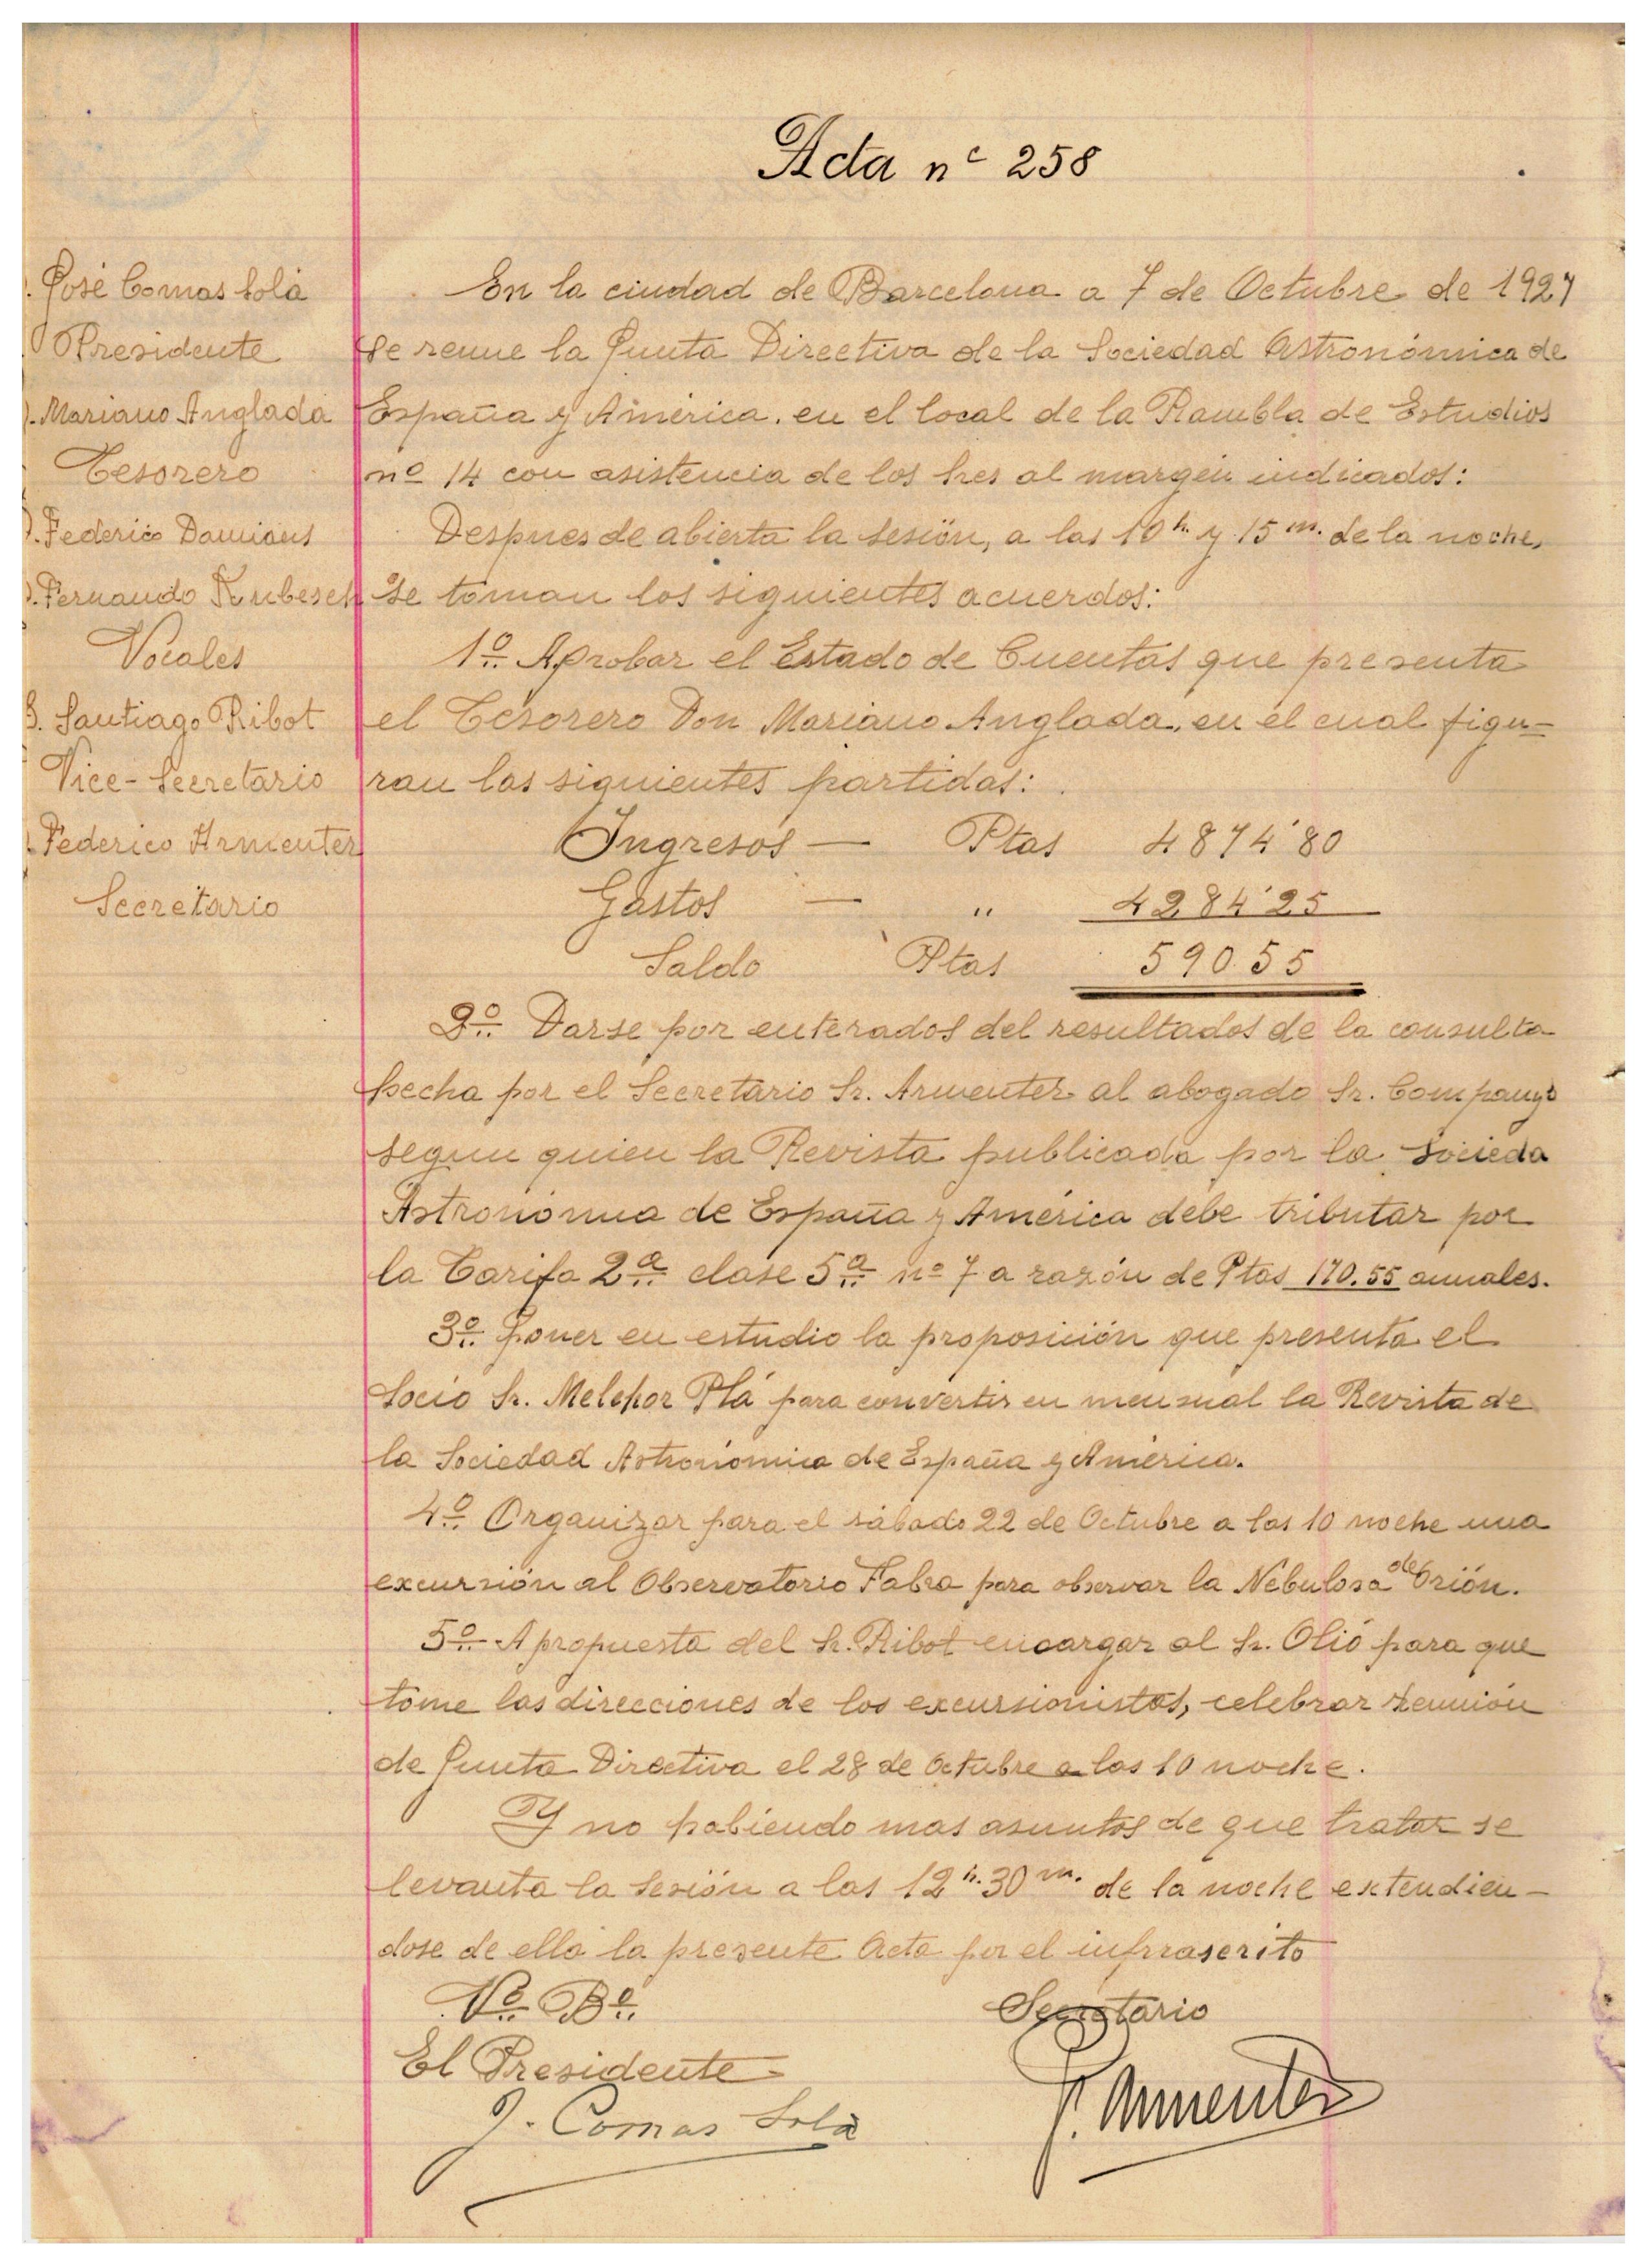 Acta nº 258
José Comas Solá
Presidente
D. Mariano Anglada
Tesorero
D. Federico Damians
D. Fernando Kubesch
Vocales
D. Santiago Ribot
Vice-Secretario
Federico Armenter
Secretario
En la ciudad de Barcelona a 7 de Octubre de 1927
se reune la Junta Directiva de la Sociedad Astronómica de
España y América, en el local de la Rambla de Estudios
nº 14 con asistencia de los Sres al margen indicados:
Despues de abierta la sesión, a las 10 h. y 15 m. de la noche,
se toman los siguientes acuerdos:
1º. Aprobar el Estado de Cuentas que presenta
el Tesorero Don Mariano Anglada, en el cual figu-
ran las siguientes partidas:
Ingresos — Ptas 4874'80
Gastos — " 4284'25
Saldo Ptas 590.55
2º. Darse por enterados del resultados de la consulta
hecha por el Secretario Sr. Armenter al abogado Sr. Companys
segun quien la Revista publicada por la Socieda
Astronómica de España y América debe tributar por
la Tarifa 2ª. clase 5ª. nº 7 a razón de Ptas 170.55 anuales.
3º. poner en estudio la proposición que presenta el
Socio Sr. Melchor Plá para convertir en mensual la Revista de
la Sociedad Astronómica de España y América.
4º. Organizar para el sábado 22 de Octubre a las 10 noche una
excursión al Observatorio Fabra para observar la Nebulosa de Orión.
5º. A propuesta del Sr. Ribot encargar al Sr. Olió para que
tome las direcciones de los excursionistas, celebrar reunión
de Junta Directiva el 28 de Octubre a las 10 noche.
Y no habiendo mas asuntos de que tratar se
levanta la sesión a las 12 h. 30 m. de la noche extendien-
dose de ello la presente Acta por el infrrascrito
Vº. Bº. Secretario
El Presidente
J. Comas Solá F. Armenter